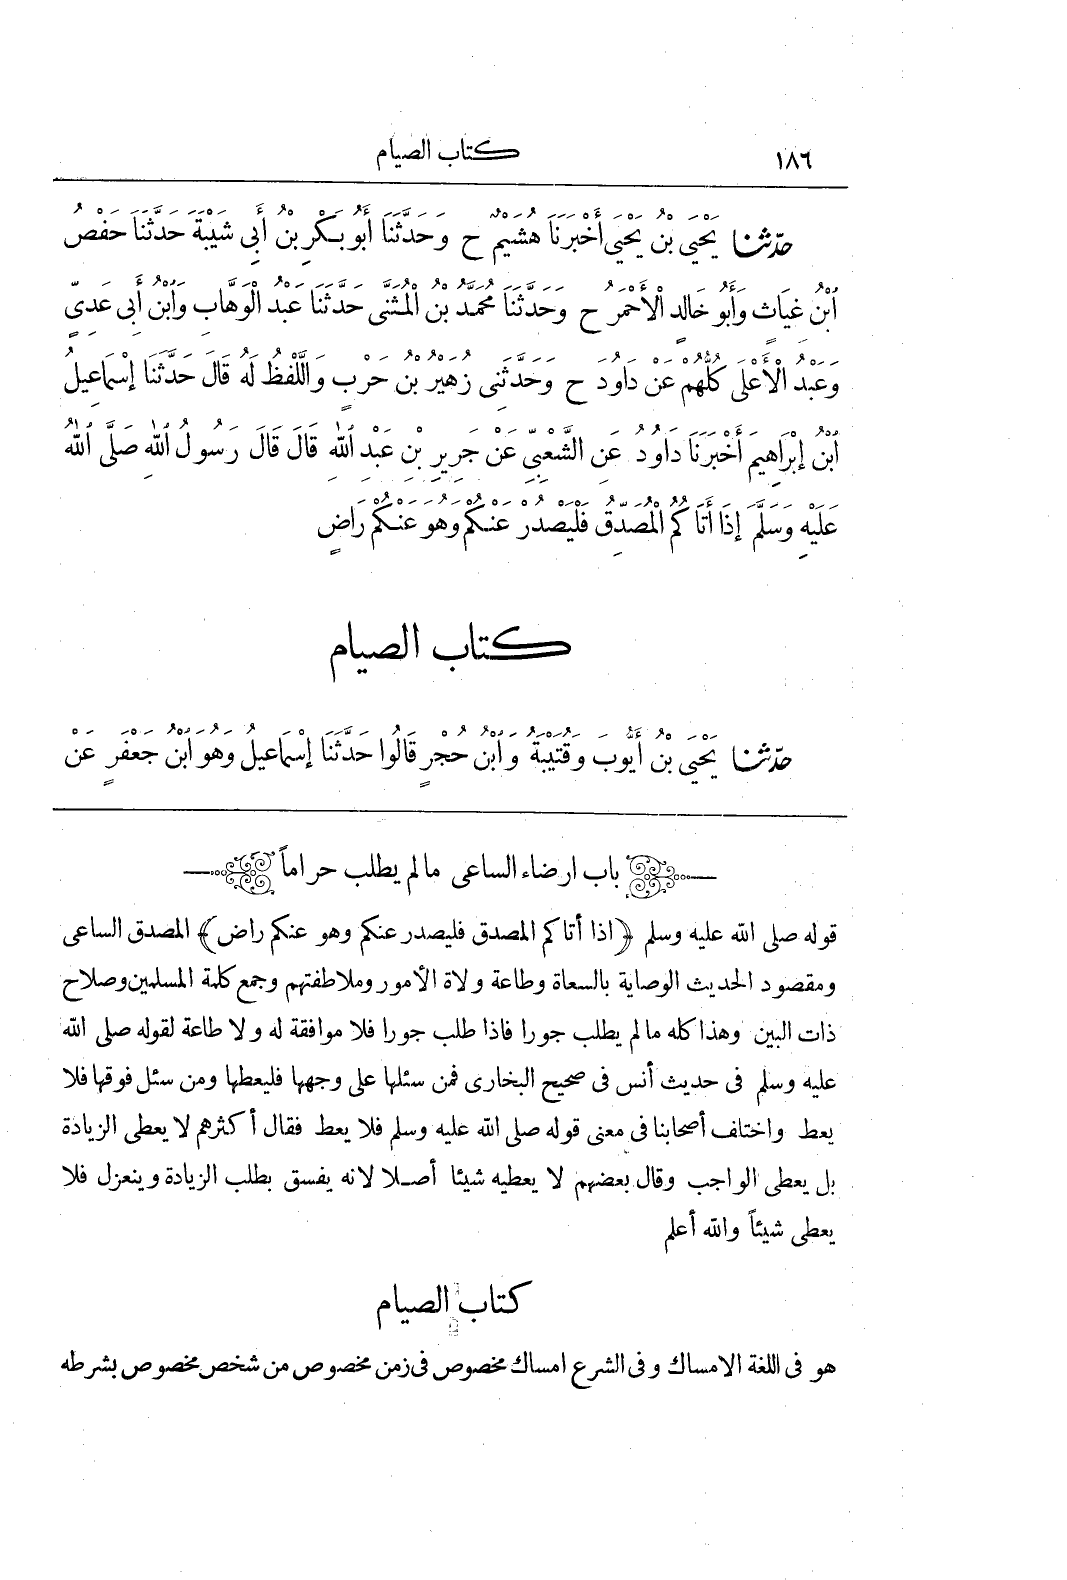 ١٨٦ كتاب الصيام
حدّثنا يَحْيَى بْنُ يَحْيَى أَخْبَرَنَا هُشَيْمٌ ح وَحَدَّثَنَا أَبُو بَكْرِ بْنُ أَبِي شَيْبَةَ حَدَّثَنَا حَفْصُ
ابْنُ غِيَاثٍ وَأَبُو خَالِدٍ الْأَحْمَرُ ح وَحَدَّثَنَا مُحَمَّدُ بْنُ الْمُثَنَّى حَدَّثَنَا عَبْدُ الْوَهَّابِ وَابْنُ أَبِي عَدِيٍّ
وَعَبْدُ الْأَعْلَى كُلُّهُمْ عَنْ دَاوُدَ ح وَحَدَّثَنِي زُهَيْرُ بْنُ حَرْبٍ وَاللَّفْظُ لَهُ قَالَ حَدَّثَنَا إِسْمَاعِيلُ
ابْنُ إِبْرَاهِيمَ أَخْبَرَنَا دَاوُدُ عَنِ الشَّعْبِيِّ عَنْ جَرِيرِ بْنِ عَبْدِ اللهِ قَالَ قَالَ رَسُولُ اللهِ صَلَّى اللهُ
عَلَيْهِ وَسَلَّمَ إِذَا أَتَاكُمُ الْمُصَدِّقُ فَلْيَصْدُرْ عَنْكُمْ وَهُوَ عَنْكُمْ رَاضٍ
كتاب الصيام
حدّثنا يَحْيَى بْنُ أَيُّوبَ وَقُتَيْبَةُ وَابْنُ حُجْرٍ قَالُوا حَدَّثَنَا إِسْمَاعِيلُ وَهُوَ ابْنُ جَعْفَرٍ عَنْ
باب ارضاء الساعى مالم يطلب حراماً
قوله صلى الله عليه وسلم ﴿اذا أتاكم المصدق فليصدر عنكم وهو عنكم راض﴾ المصدق الساعى
ومقصود الحديث الوصاية بالسعاة وطاعة ولاة الأمور وملاطفتهم وجمع كلمة المسلمين وصلاح
ذات البين وهذا كله مالم يطلب جورا فاذا طلب جورا فلا موافقة له ولا طاعة لقوله صلى الله
عليه وسلم فى حديث أنس فى صحيح البخارى فمن سئلها على وجهها فليعطها ومن سئل فوقها فلا
يعط واختلف أصحابنا فى معنى قوله صلى الله عليه وسلم فلا يعط فقال أكثرهم لا يعطى الزيادة
بل يعطى الواجب وقال بعضهم لا يعطيه شيئا أصلا لانه يفسق بطلب الزيادة وينعزل فلا
يعطى شيئاً والله أعلم
كتاب الصيام
هو فى اللغة الامساك وفى الشرع امساك مخصوص فى زمن مخصوص من شخص مخصوص بشرطه